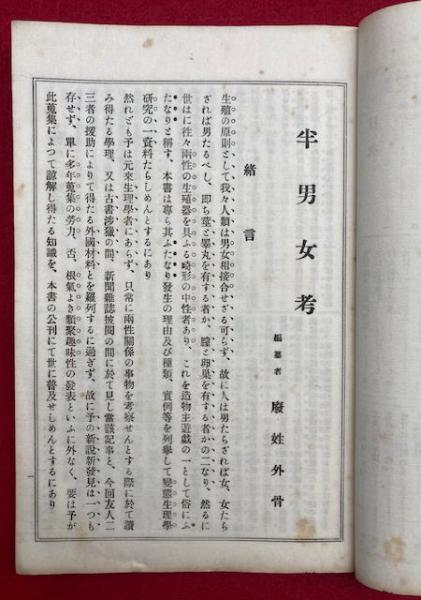 半男女考
編纂者　廢姓外骨
緒言
生殖の原則として我々人類は男女相接合せざる可らず、故に人は男たらざれば女、女たら
ざれば男たるべし、即ち莖と睾丸を有する者か、膣と卵巢を有する者かの二なり、然るに
世には往々兩性の生殖器を具ふる畸形の中性者あり、これを造物主遊戲の一として俗にふ
たなりと稱す、本書は專ら其ふたなり發生の理由及び種類、實例等を列擧して變態生理學
研究の一資料たらしめんとするにあり
然れども予は元來生理學者にあらず、只常に兩性關係の事物を考察せんとする際に於て讀
み得たる學理、又は古書涉獵の間、新聞雜誌披閱の間に於て見し當該記事と、今回友人二
三者の援助によりて得たる外國材料とを羅列するに過ぎず、故に予の新說新發見は一つも
存せず、單に多年蒐集の勞力、否、根氣よき類聚趣味性の發表といふに外なく、要は予が
此蒐集によつて諒解し得たる知識を、本書の公刊にて世に普及せしめんとするにあり
一